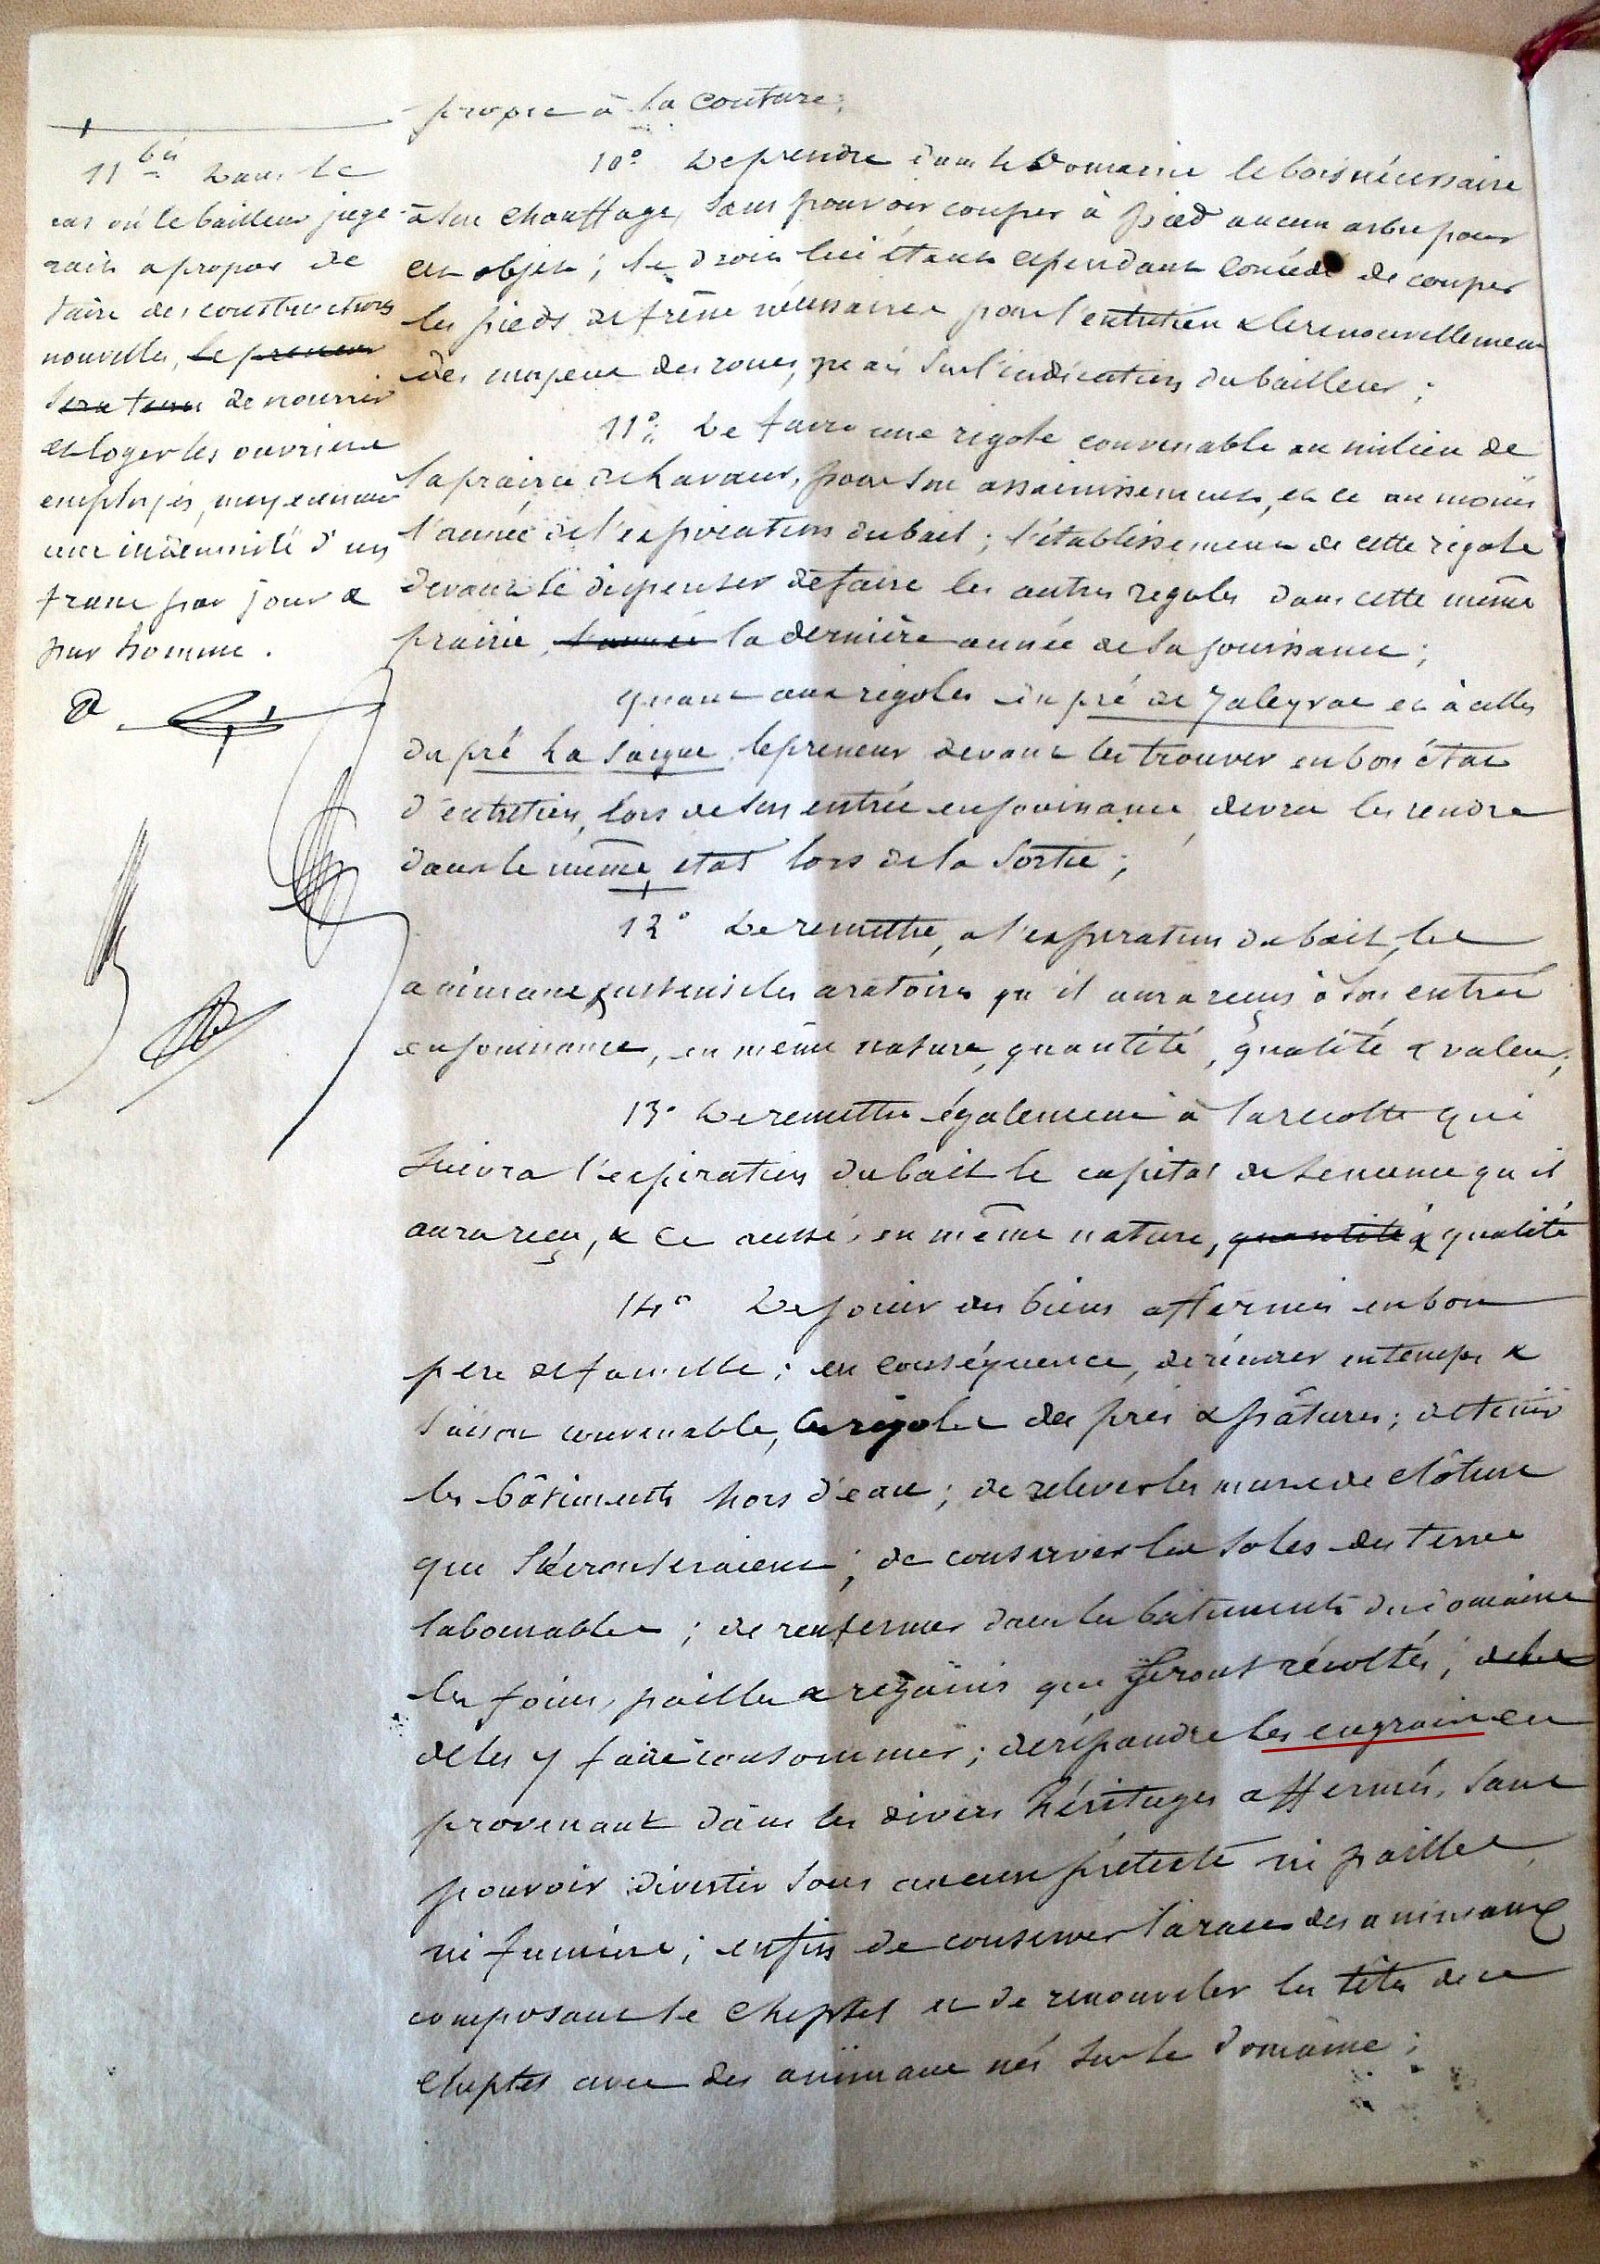 propre à la couture;
10° De prendre dans le Domaine le bois nécessaire
à son chauffage, sans pouvoir couper à pied aucun arbre pour
cet objet; le droit lui étant cependant concédé de couper
les pieds de frêne nécessaires pour l'entretien & le renouvellement
des moyeux des roues, mais sur l'indication du bailleur;
11° De faire une rigole convenable au milieu de
la prairie de Lavaur, pour son assainissement, et ce au moins
l'année de l'expiration du bail; l'établissement de cette rigole
devant le dispenser de faire les autres rigoles dans cette même
prairie, l'année la dernière année de sa jouissance;
quant aux rigoles du pré de Jaleyrac et à celles
du pré La Sagne le preneur devant les trouver en bon état
d'entretien, lors de son entrée en jouissance, devra les rendre
dans le même état lors de la sortie;
12° De remettre, à l'expiration du bail, les
animaux & ustensiles aratoires qu'il aura reçus à son entrée
en jouissance, en même nature, quantité, qualité & valeur;
13° De remettre également à la récolte qui
suivra l'expiration du bail le capital de semence qu'il
aura reçu, & ce aussi en même nature, quantité & qualité
14° De jouir des biens affermés en bon
père de famille; en conséquence, de récurer en temps &
saison convenable, les rigoles des prés & pâtures; de tenir
les bâtiments hors d'eau; de relever les murs de clôture
qui s'écrouleraient; de conserver les soles des terres
labourables; de renfermer dans les bâtiments du domaine
les foins, pailles & regains qui seront récoltés; de les
de les y faire consommer; de répandre les engrais en
provenant dans les divers héritages affermés, sans
pouvoir divertir sous aucun prétexte ni pailles
ni fumiers; enfin de conserver la race des animaux
composant le cheptel et de renouveler les têtes de ce
cheptel avec des animaux nés sur le domaine;
11 bis Dans le
cas où le bailleur juge-
rait à propos de
faire des constructions
nouvelles, le preneur
sera tenu de nourrir
et loger les ouvriers
employés, moyennant
une indemnité d'un
franc par jour &
par homme.